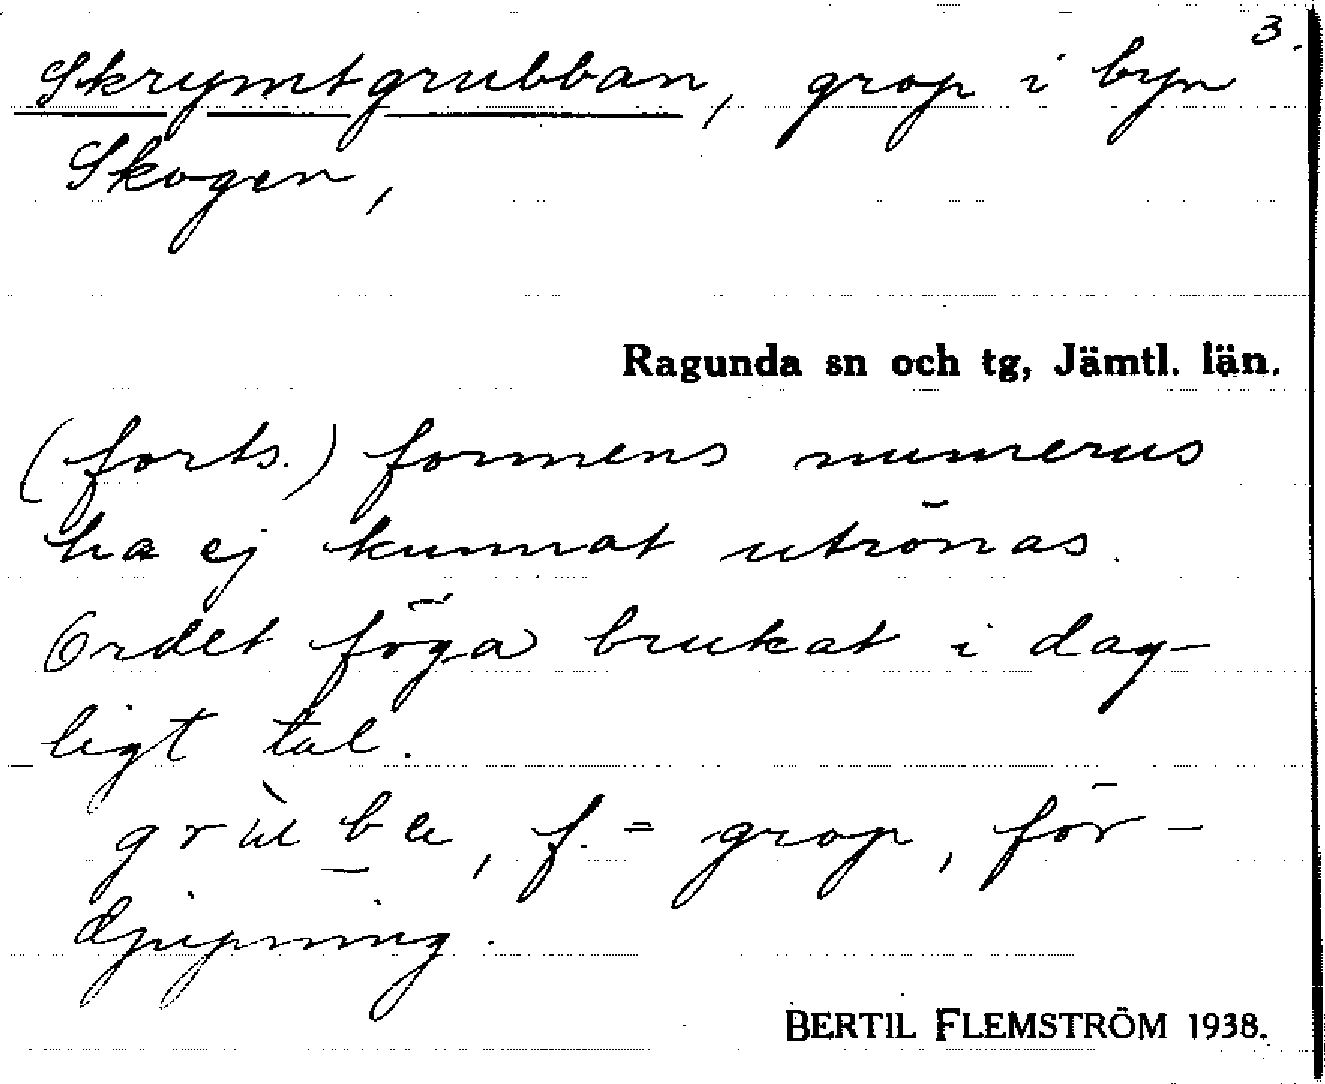 3.
Skrymtgrubban, grop i byn
Skogen,
Ragunda sn och tg, Jämtl. län.
(forts.) formens numerus
ha ej kunnat utrönas.
Ordet föga brukat i dag-
ligt tal.
grùba, f. = grop, för-
djupning.
BERTIL FLEMSTRÖM 1938.